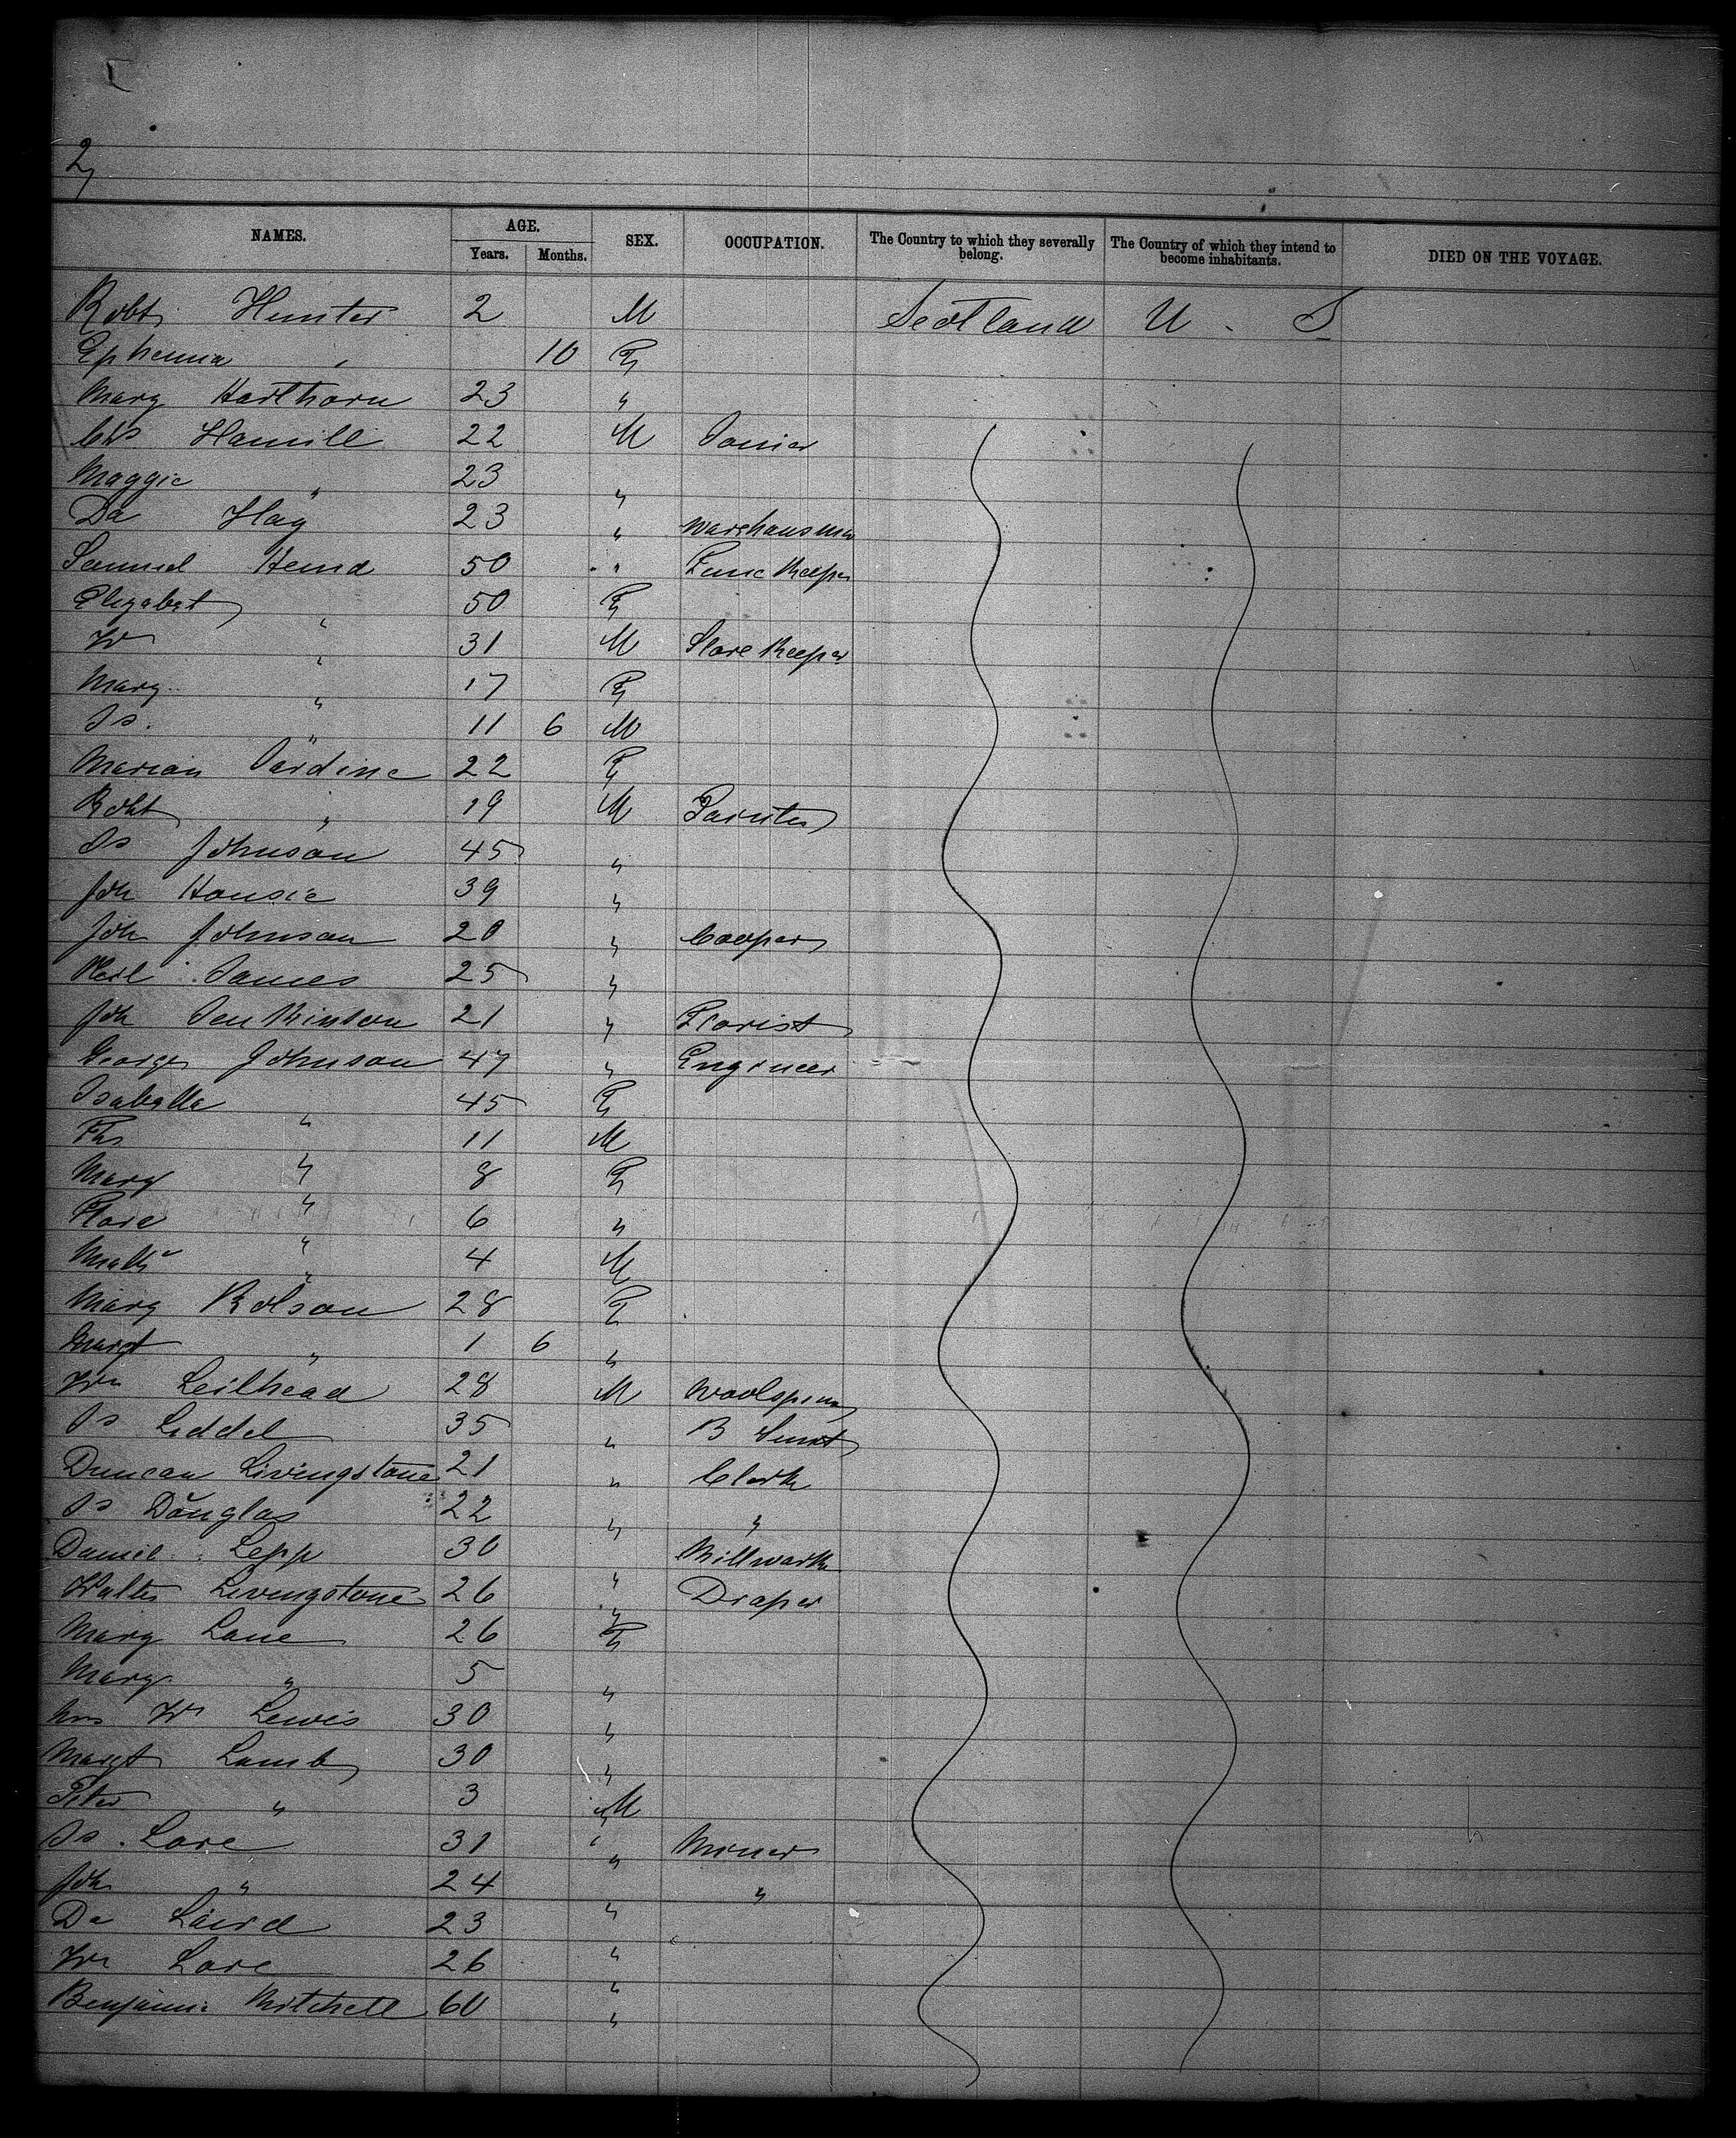 2
NAMES. AGE. SEX. OCCUPATION. The Country to which they severally belong. The Country of which they intend to become inhabitants. DIED ON THE VOYAGE.
Years. Months.
Robt Hunter 2 M Scotland U. S
Ephemia " 10 F
Mary Harthorn 23 "
Chs Hamill 22 M
Maggie " 23 "
Da Hay 23 "
Samuel 50 " Keeper
Elizabet " 50 F
Wm " 31 M Store Keeper
Mary " 17 F
Js. " 11 6 M
Marian Jardine 22 F
Robt " 19 M Painter
Js Johnson 45 "
Joh 39 "
Joh Johnson 20 " Cooper
James 25 "
Joh Jenkinson 21 " Florist
George Johnson 47 " Engineer
Isabella " 45 F
Ths " 11 M
Mary " 8 F
" 6 "
" 4 M
Mary Rolson 28 F
Margt " 1 6 "
Wm Leilhead 28 M
Js Liddel 35 " B
Duncan Livingstone 21 " Clerk
Js Douglas 22 " "
Daniel 30 "
Walter Livingstone 26 " Draper
Mary Lane 26 F
Mary " 5 "
Mrs Wm Lewis 30 "
Margt Lamb 30 "
Peter " 3 M
Js. 31 " Miner
Joh " 24 " "
Da Laird 23 "
Wm 26 "
Mitchell 60 "